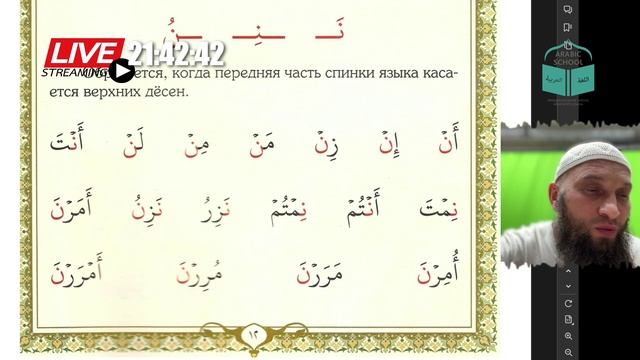 نَـ ـنِـ ـنُ
LIVE 21:42:42
STREAMING
когда передняя часть спинки языка каса-
ется верхних дёсен.
أَنْ إِنْ زِنْ مَنْ مِنْ لَنْ أَنْتَ
نِمْتَ أَنْتُمْ نِمْتُمْ نَزِرُ نَزِنُ أَمَرْنَ
أُمِرْنَ مَرَرْنَ مُرِرْنَ أَمْرَرْنَ
١٢
ARABIC
SCHOOL
اللغة العربية